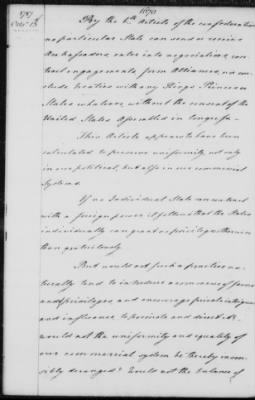 1787
Octr 13
By the 6th Article of the confederation
no particular State can send or receive
Ambassadors, enter into negotiations, con-
tract engagements, form Alliances, or con-
clude treaties with any Kings Princes or
States whatever, without the consent of the
United States Assembled in Congress.—
This Article appears to have been
calculated to preserve uniformity not only
in our political, but also in our commercial
Systems.
If no Individual State can contract
with a foreign power, it follows that the States
individually can grant no privileges therein
than gratuitously.
But would not such a practice na-
turally tend to introduce a commerce of favors
and privileges and encourage private intrigues
and influence to promote and direct it.
would not the uniformity and equality of
our commercial system be thereby insen-
sibly deranged? Would not the balance of